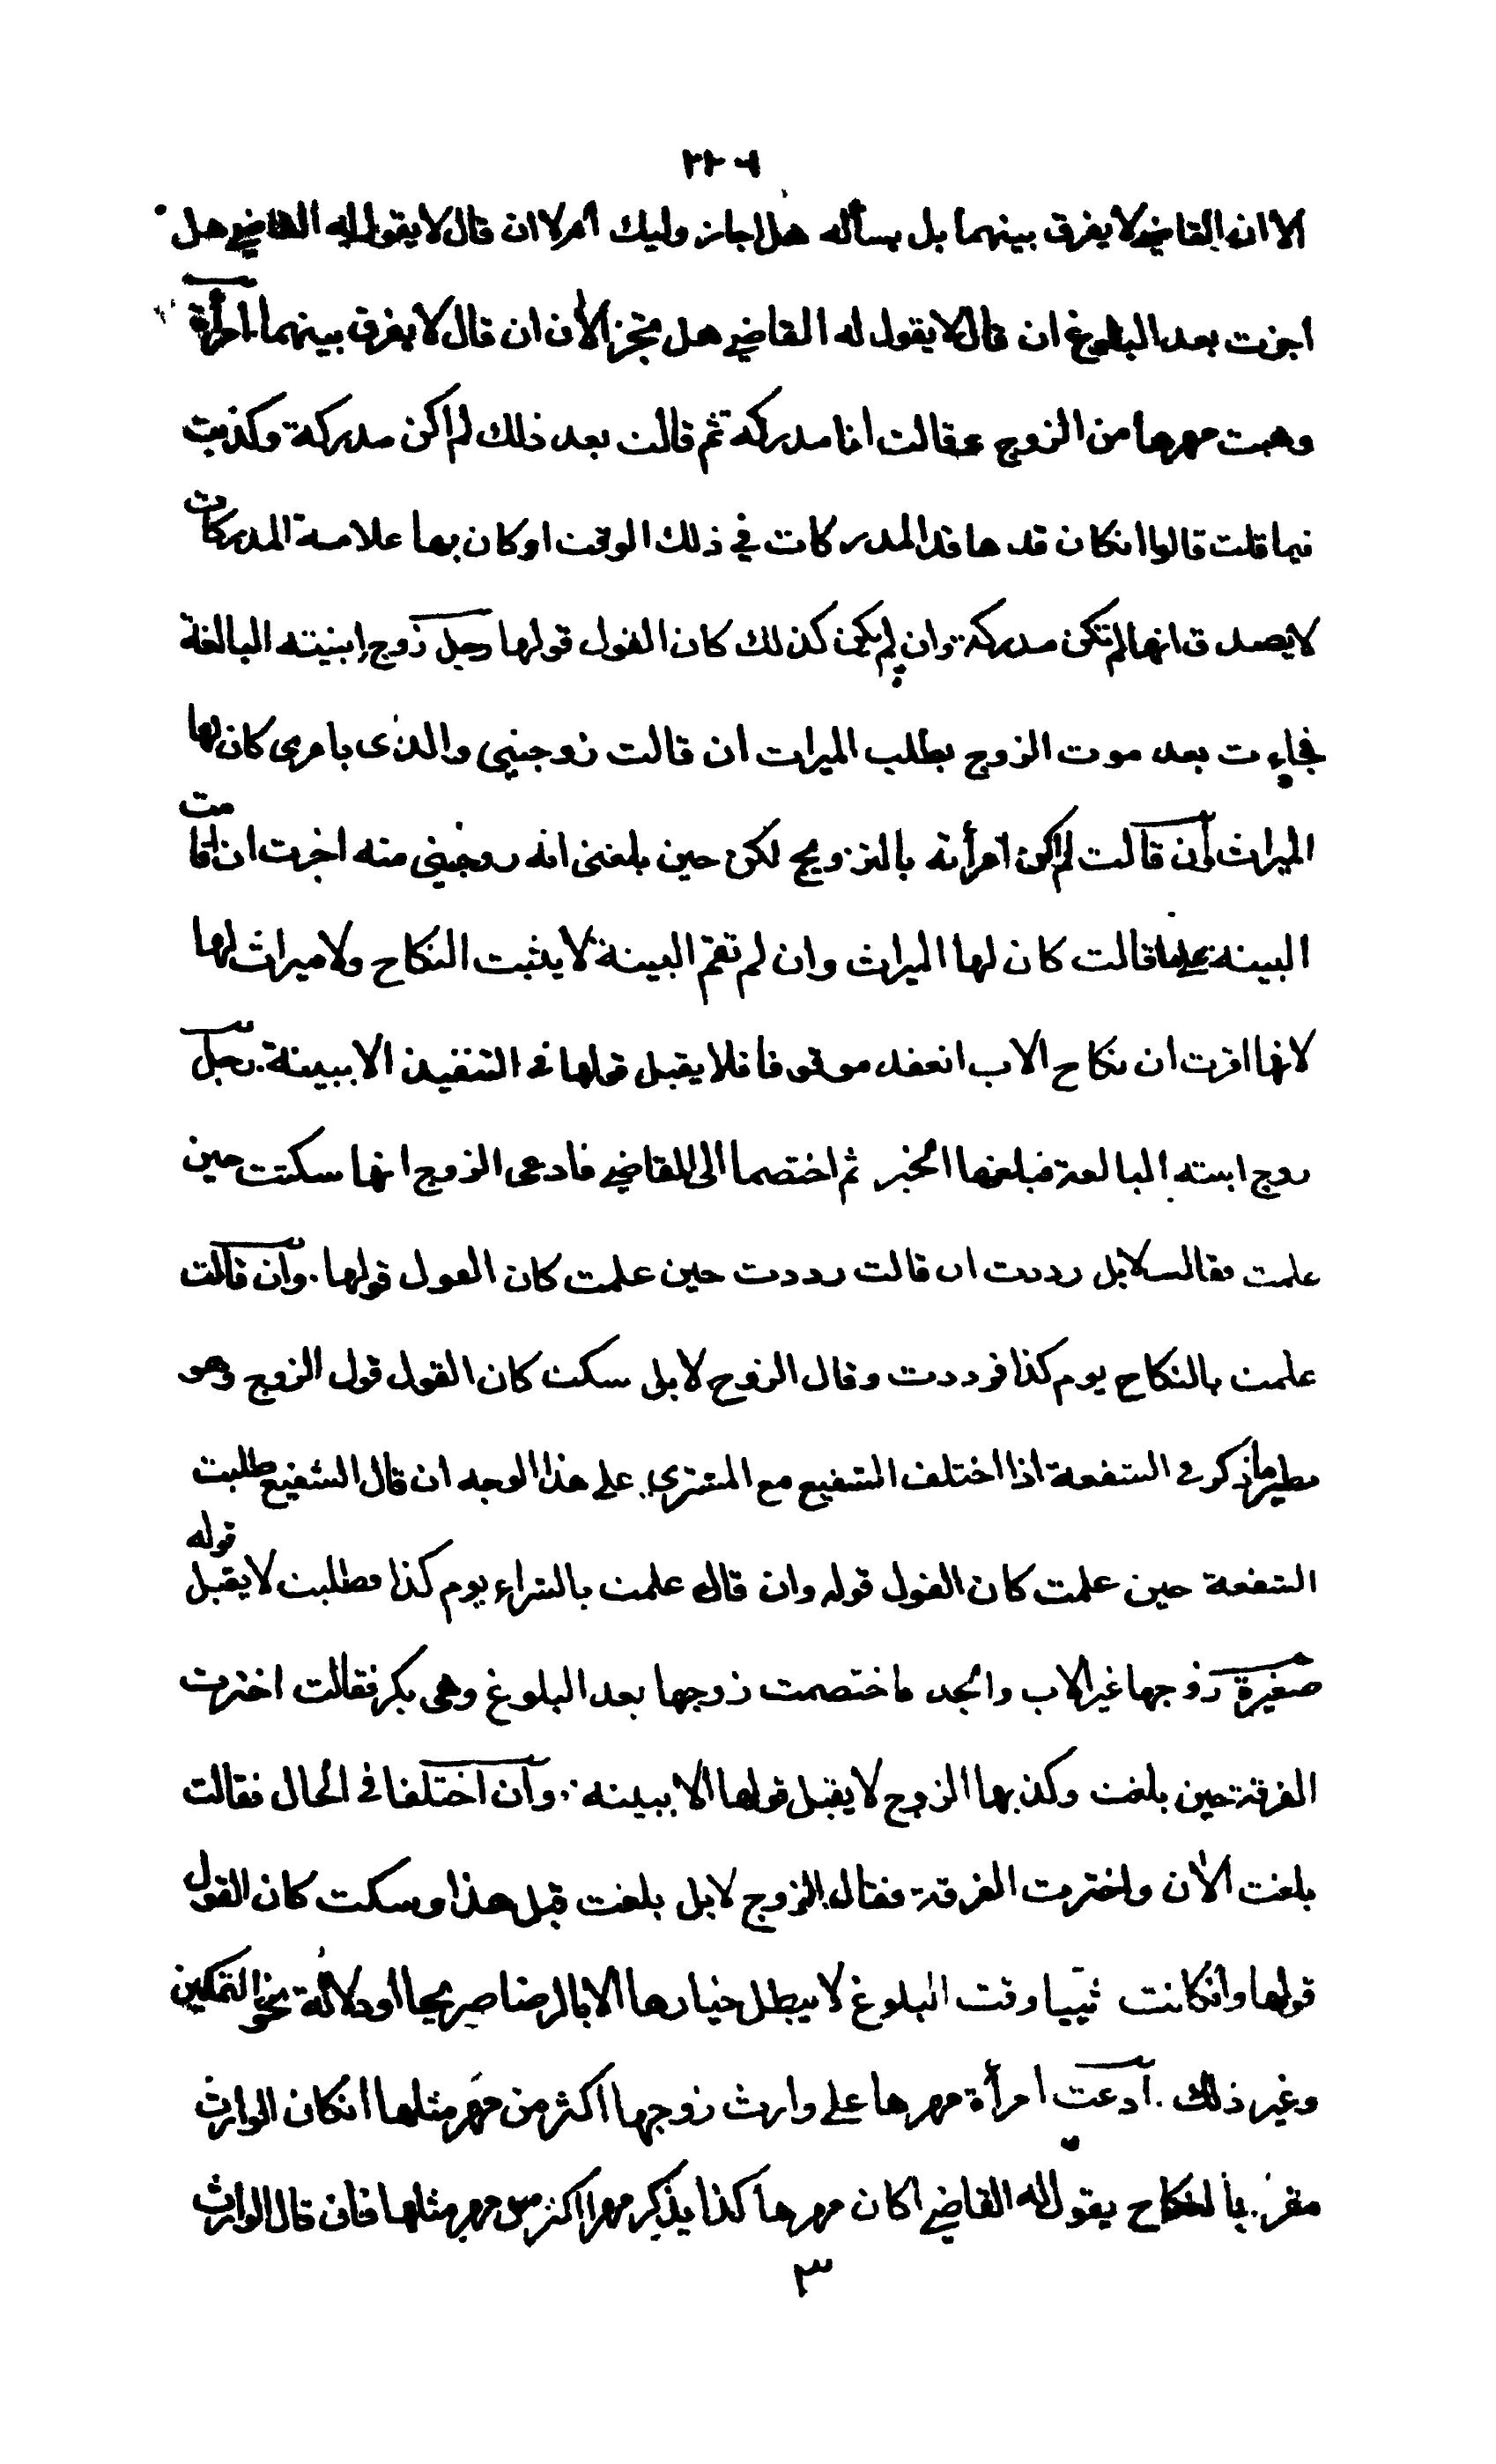 الا ان القاضي لا يفرق بينهما بل يسأله هل اجاز وليك ام لا ان قال لا يقول له القاضي هل
اجزت بعد البلوغ ان قال لا يقول له القاضي هل تجيز الأن ان قال لا يفرق بينهما امرأة
وهبت مهرها من الزوج وقالت انا مدركة ثم قالت بعد ذلك لم اكن مدركة وكذبت
فيما قلت قالوا انكان قدها قد المدركات في ذلك الوقت او كان بها علامة المدركات
لا يصدق انها لم تكن مدركة وان لم يكن كذلك كان القول قولها رجل زوج ابنيته البالغة
فجاءت بعد موت الزوج بطلب الميراث ان قالت زوجنيى والدى بامرى كان لها
الميراث وان قالت لم اكن امرأته بالتزويج لكن حين بلغنى انه زوجنيى منه اجزت ان اقامت
البينة على ما قالت كان لها الميراث وان لم تقم البينة لا يثبت النكاح ولا ميراث لها
لانها اقرت ان نكاح الاب انعقد موقوفا فلا يقبل قولها في التنفيذ الا ببينة. رجل
زوج ابنته البالغة فبلغها الخبر ثم اختصما الى القاضي فادعى الزوج انها سكتت حين
علمت فقالت لا بل رددت ان قالت رددت حين علمت كان القول قولها. وان قالت
علمت بالنكاح يوم كذا فرددت وقال الزوج لا بل سكت كان القول قول الزوج وهو
نظير ما ذكر في الشفعة اذا اختلف الشفيع مع المشتري على هذا الوجه ان قال الشفيع طلبت
الشفعة حين علمت كان القول قوله وان قال علمت بالشراء يوم كذا فطلبت لا يقبل قوله
صغيرة زوجها غير الاب والجد فاختصمت زوجها بعد البلوغ وهي بكر فقالت اخترت
الفرقة حين بلغت وكذبها الزوج لا يقبل قولها الا ببينة. وان اختلفا في الحال فقالت
بلغت الأن واخترت الفرقة فقال الزوج لا بل بلغت قبل هذا وسكت كان القول
قولها وانكانت ثيبا وقت البلوغ لا يبطل خيارها الا بالرضا صريحا او دلالة نحو التمكين
وغير ذلك. ادعت امرأة مهرها على وارث زوجها اكثر من مهر مثلها انكان الوارث
مقر بالنكاح يقول له القاضي اكان مهرها كذا يذكر مهرا اكثر من مهر مثلها فان قال الوارث
٣